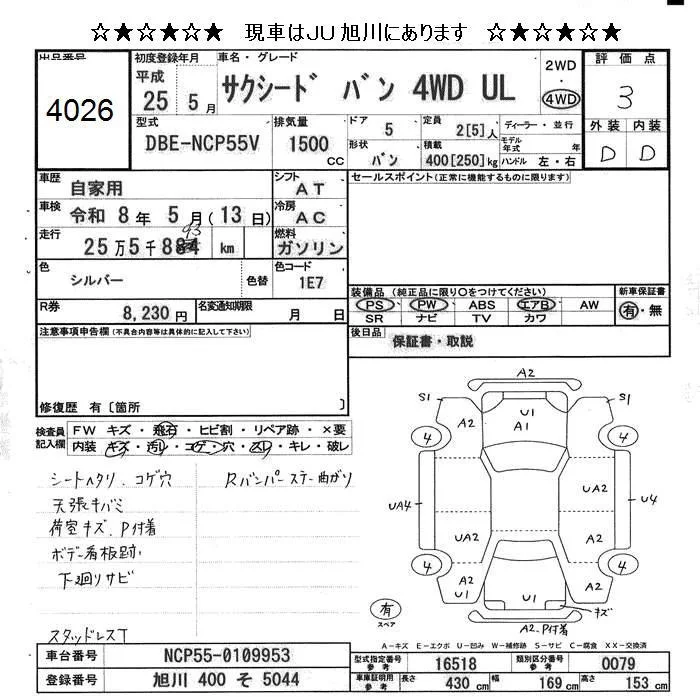 ☆★☆★☆★ 現車はJU旭川にあります ☆★☆★☆★
出品番号
4026
初度登録年月
平成
25 5月
車名・グレード
サクシード バン 4WD UL
2WD
・
4WD
評価点
3
型式
DBE-NCP55V
排気量
1500
CC
ドア
5
定員
2[5]人
形状
バン
積載
400[250]kg
ディーラー・並行
モデル年式 年
ハンドル 左・右
外装 内装
D D
車歴
自家用
シフト
AT
車検
令和 8年 5月(13日)
冷房
AC
走行
25万5千884 km
93
燃料
ガソリン
色
シルバー
色替
色コード
1E7
R券
8,230円
名変通知期限
月 日
セールスポイント(正常に機能するものに限ります)
装備品(純正品に限り○をつけてください)
PS PW ABS エアB AW
SR ナビ TV カワ
新車保証書
有・無
後日品
保証書・取説
注意事項申告欄(不具合内容等は具体的に記入して下さい)
修復歴 有〔箇所 〕
検査員記入欄
FW キズ・飛石・ヒビ割・リペア跡・×要
内装 キズ・汚れ・コゲ・穴・スレ・キレ・破レ
シートヘタリ、コゲ穴
天張キバミ
荷室キズ、P付着
ボデー看板跡
下廻りサビ
スタッドレスT
Rバンパーステー曲がり
A2
S1 S1
A2 U1 A1 A2
4 4
UA4 UA2 U4
UA2 A2
4 4
A2 U1 U1 A2
キズ
有
スペア
A2、P付着
A-キズ E-エクボ U-凹み W-補修跡 S-サビ C-腐食 XX-交換済
車台番号
NCP55-0109953
登録番号
旭川 400 そ 5044
型式指定番号
参考
16518
類別区分番号
参考
0079
車庫証明用
参考
長さ 430cm 幅 169cm 高さ 153cm